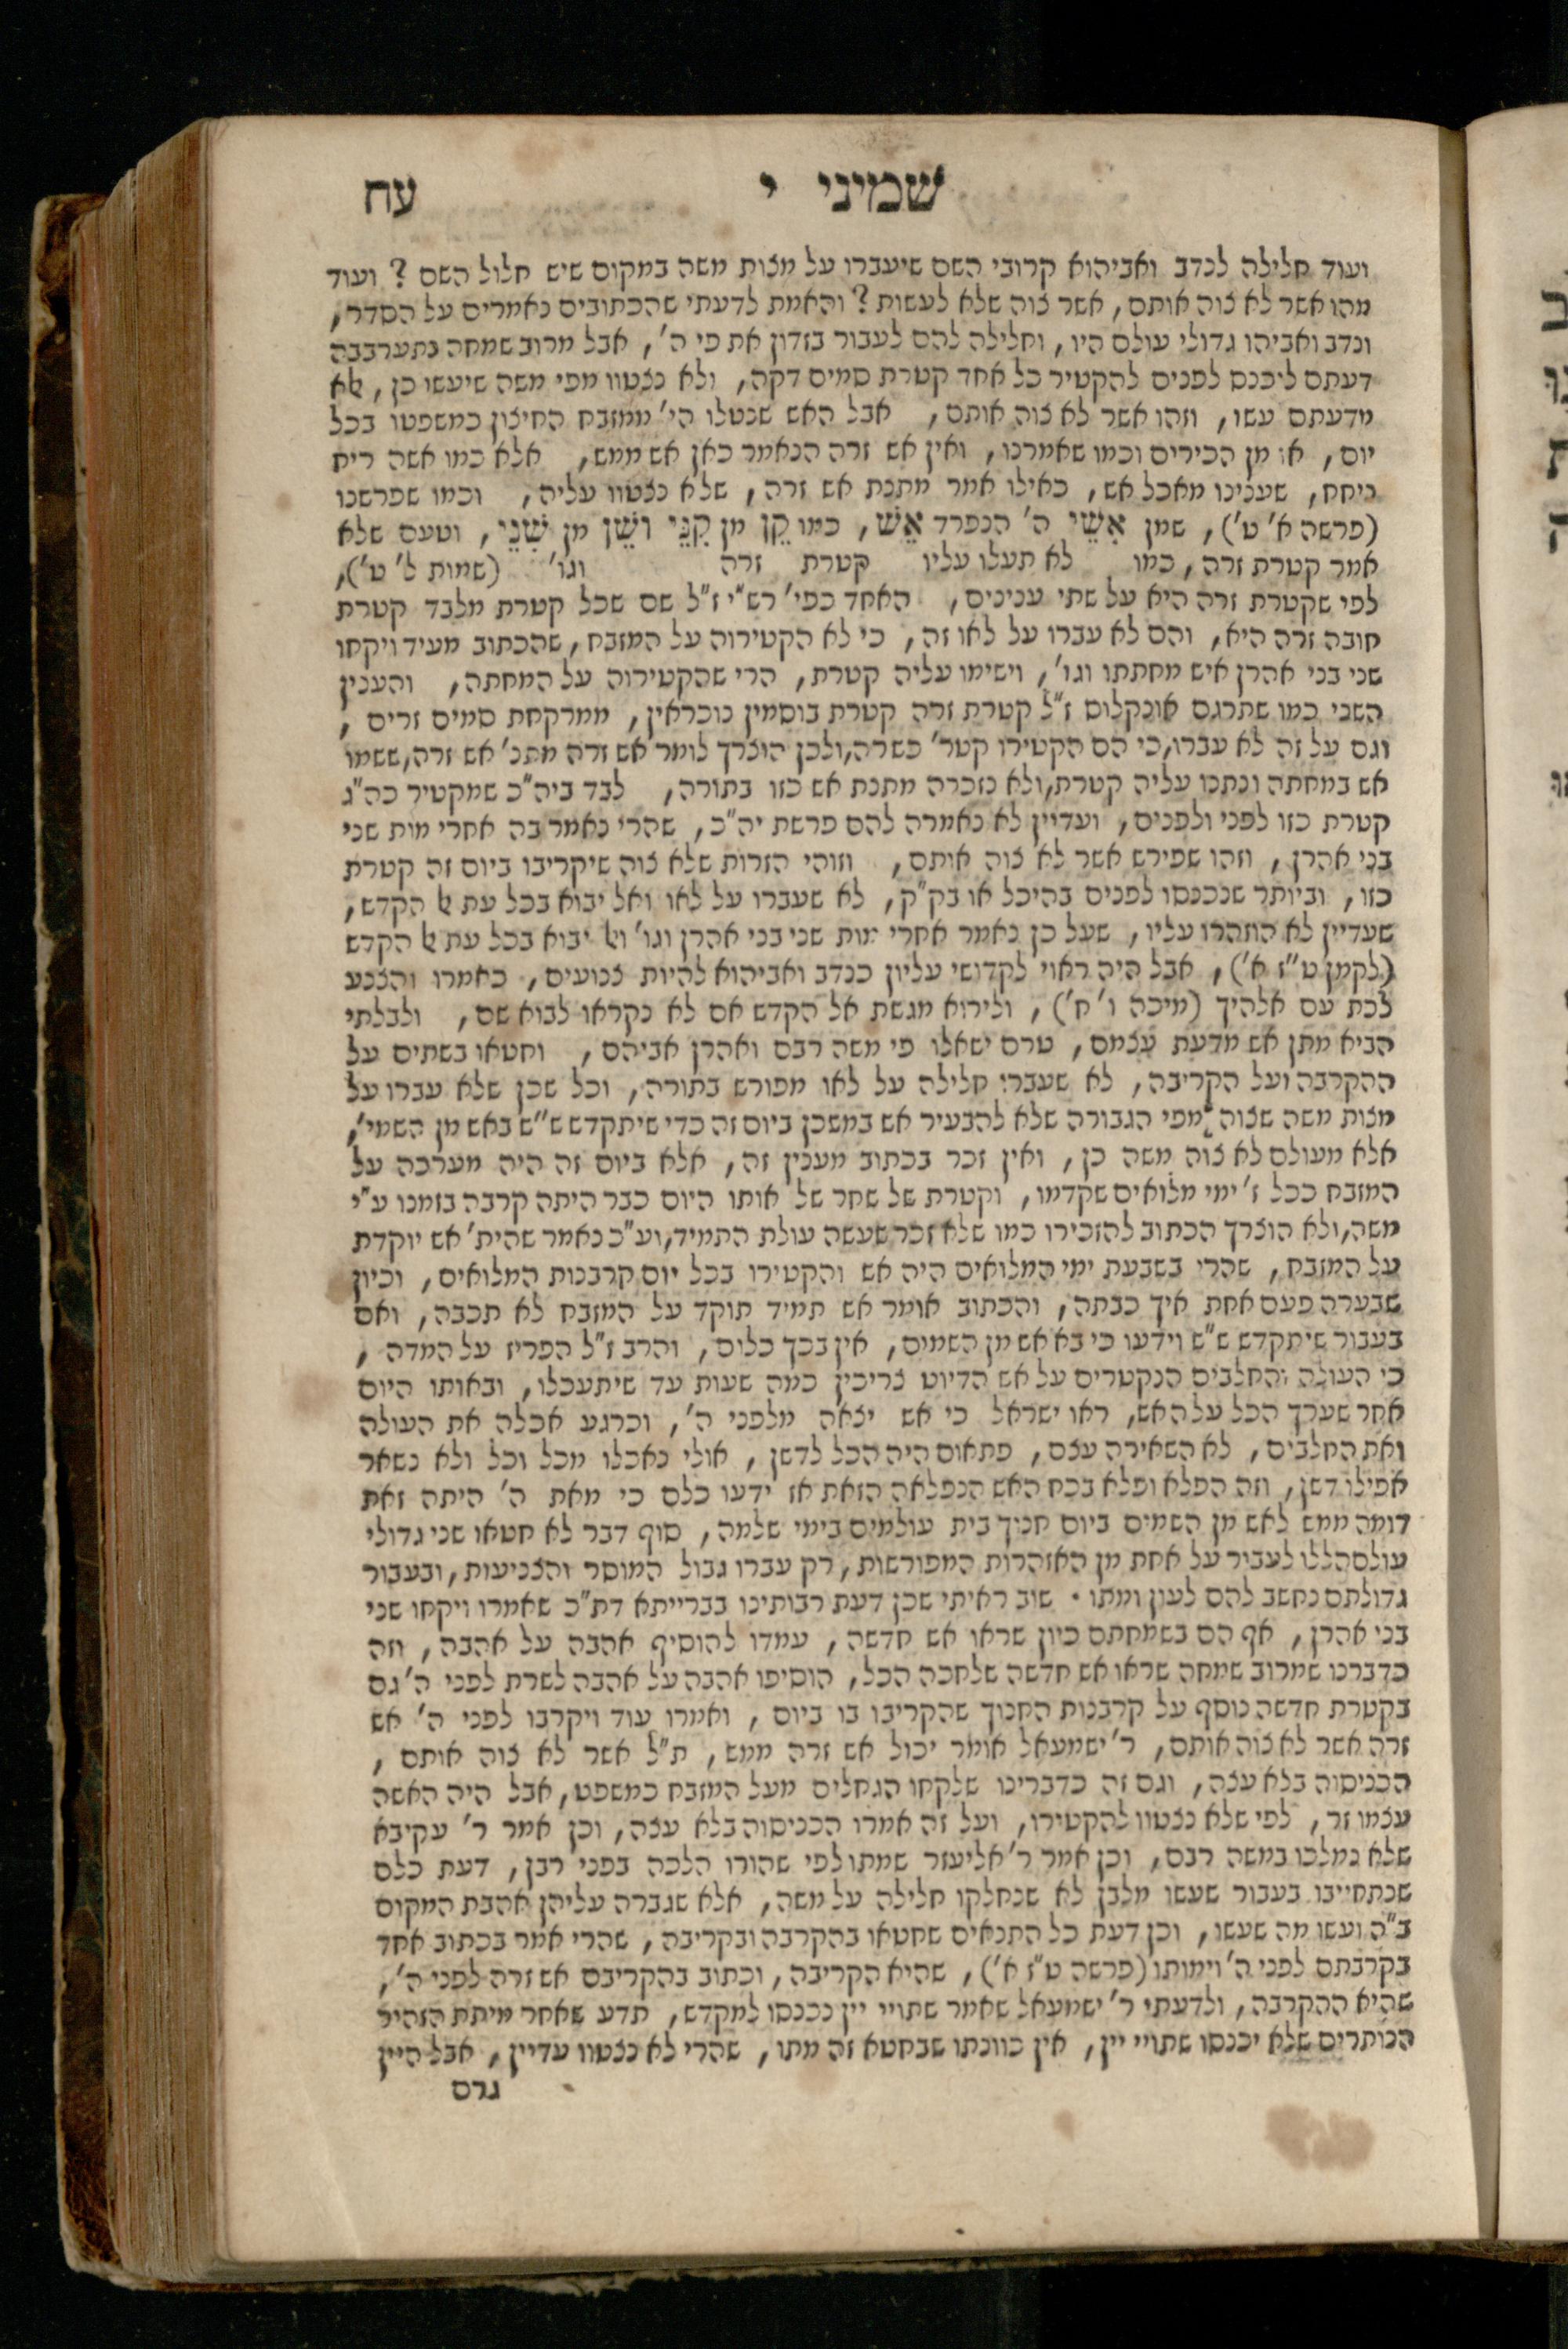 שמיני י עח
ועוד חלילה לנדב ואביהוא קרובי השם שיעברו על מצות משה במקום שיש חלול השם ? ועוד
מהו אשר לא צוה אותם, אשר צוה שלא לעשות ? והאמת לדעתי שהכתובים נאמרים על הסדר,
ונדב ואביהו גדולי עולם היו, וחלילה להם לעבור בזדון את פי ה', אבל מרוב שמחה נתערבבה
דעתם ליכנס לפנים להקטיר כל אחד קטרת סמים דקה, ולא נצטוו מפי משה שיעשו כן, אלא
מדעתם עשו, וזהו אשר לא צוה אותם, אבל האש שנטלו הי' ממזבח החיצון כמשפטו בכל
יום, או מן הכירים וכמו שאמרנו, ואין אש זרה הנאמר כאן אש ממש, אלא כמו אשה ריח
ניחח, שענינו מאכל אש, כאילו אמר מתנת אש זרה, שלא נצטוו עליה, וכמו שפרשנו
(פרשה א' ט'), שמן אִשֵּׁי ה' הנפרד אֵשׁ, כמו קֵן מן קִנֵּי ושֵׁן מן שִׁנֵּי, וטעם שלא
אמר קטרת זרה, כמו לא תעלו עליו קטרת זרה וגו' (שמות ל' ט'),
לפי שקטרת זרה היא על שתי ענינים, האחד כפי' רש"י ז"ל שם שכל קטרת מלבד קטרת
חובה זרה היא, והם לא עברו על לאו זה, כי לא הקטירוה על המזבח, שהכתוב מעיד ויקחו
שני בני אהרן איש מחתתו וגו', וישימו עליה קטרת, הרי שהקטירוה על המחתה, והענין
השני כמו שתרגם אונקלוס ז"ל קטרת זרה קטרת בוסמין נוכראין, ממרקחת סמים זרים,
וגם על זה לא עברו, כי הם הקטירו קטר' כשרה, ולכן הוצרך לומר אש זרה מתנ' אש זרה, ששמו
אש במחתה ונתנו עליה קטרת, ולא נזכרה מתנת אש כזו בתורה, לבד ביה"כ שמקטיר כה"ג
קטרת כזו לפני ולפנים, ועדיין לא נאמרה להם פרשת יה"כ, שהרי נאמר בה אחרי מות שני
בני אהרן, וזהו שפירש אשר לא צוה אותם, וזוהי הזרות שלא צוה שיקריבו ביום זה קטרת
כזו, וביותר שנכנסו לפנים בהיכל או בק"ק, לא שעברו על לאו ואל יבוא בכל עת אל הקדש,
שעדיין לא הוזהרו עליו, שעל כן נאמר אחרי מות שני בני אהרן וגו' ואל יבוא בכל עת אל הקדש
(לקמן ט"ז א'), אבל היה ראוי לקדושי עליון כנדב ואביהוא להיות צנועים, כאמרו והצנע
לכת עם אלהיך (מיכה ו' ח'), ולירוא מגשת אל הקדש אם לא נקראו לבוא שם, ולבלתי
הביא מתן אש מדעת עצמם, טרם ישאלו פי משה רבם ואהרן אביהם, וחטאו בשתים על
ההקרבה ועל הקריבה, לא שעברו חלילה על לאו מפורש בתורה, וכל שכן שלא עברו על
מצות משה שצוה מפי הגבורה שלא להבעיר אש במשכן ביום זה כדי שיתקדש ש"ש באש מן השמי',
אלא מעולם לא צוה משה כן, ואין זכר בכתוב מענין זה, אלא ביום זה היה מערכה על
המזבח ככל ז' ימי מלואים שקדמו, וקטרת של שחר של אותו היום כבר היתה קרבה בזמנו ע"י
משה, ולא הוצרך הכתוב להזכירו כמו שלא זכר שעשה עולת התמיד, וע"כ נאמר שהית' אש יוקדת
על המזבח, שהרי בשבעת ימי המלואים היה אש והקטירו בכל יום קרבנות המלואים, וכיון
שבערה פעם אחת איך כבתה, והכתוב אומר אש תמיד תוקד על המזבח לא תכבה, ואם
בעבור שיתקדש ש"ש וידעו כי בא אש מן השמים, אין בכך כלום, והרב ז"ל הפריז על המדה,
כי העולה והחלבים הנקטרים על אש הדיוט צריכין כמה שעות עד שיתעכלו, ובאותו היום
אחר שערך הכל על האש, ראו ישראל כי אש יצאה מלפני ה', וכרגע אכלה את העולה
ואת החלבים, לא השאירה עצם, פתאום היה הכל לדשן, אולי נאכלו מכל וכל ולא נשאר
אפילו דשן, וזה הפלא ופלא בכח האש הנפלאה הזאת אז ידעו כלם כי מאת ה' היתה זאת
דומה ממש לאש מן השמים ביום חנוך בית עולמים בימי שלמה, סוף דבר לא חטאו שני גדולי
עולם הללו לעבור על אחת מן האזהרות המפורשות, רק עברו גבול המוסר והצניעות, ובעבור
גדולתם נחשב להם לעון ומתו. שוב ראיתי שכן דעת רבותינו בברייתא דת"כ שאמרו ויקחו שני
בני אהרן, אף הם בשמחתם כיון שראו אש חדשה, עמדו להוסיף אהבה על אהבה, וזה
כדברנו שמרוב שמחה שראו אש חדשה שלחכה הכל, הוסיפו אהבה על אהבה לשרת לפני ה' גם
בקטרת חדשה נוסף על קרבנות החנוך שהקריבו בו ביום, ואמרו עוד ויקרבו לפני ה' אש
זרה אשר לא צוה אותם, ר' ישמעאל אומר יכול אש זרה ממש, ת"ל אשר לא צוה אותם,
הכניסוה בלא עצה, וגם זה כדברינו שלקחו הגחלים מעל המזבח כמשפט, אבל היה האשה
עצמו זר, לפי שלא נצטוו להקטירו, ועל זה אמרו הכניסוה בלא עצה, וכן אמר ר' עקיבא
שלא נמלכו במשה רבם, וכן אמר ר' אליעזר שמתו לפי שהורו הלכה בפני רבן, דעת כלם
שנתחייבו בעבור שעשו מלבן לא שנחלקו חלילה על משה, אלא שגברה עליהן אהבת המקום
ב"ה ועשו מה שעשו, וכן דעת כל התנאים שחטאו בהקרבה ובקריבה, שהרי אמר בכתוב אחד
בקרבתם לפני ה' וימותו (פרשה ט"ז א'), שהיא הקריבה, וכתוב בהקריבם אש זרה לפני ה',
שהיא ההקרבה, ולדעתי ר' ישמעאל שאמר שתויי יין נכנסו למקדש, תדע שאחר מיתת הזהיר
הנותרים שלא יכנסו שתויי יין, אין כוונתו שבחטא זה מתו, שהרי לא נצטוו עדיין, אבל היין
גרם